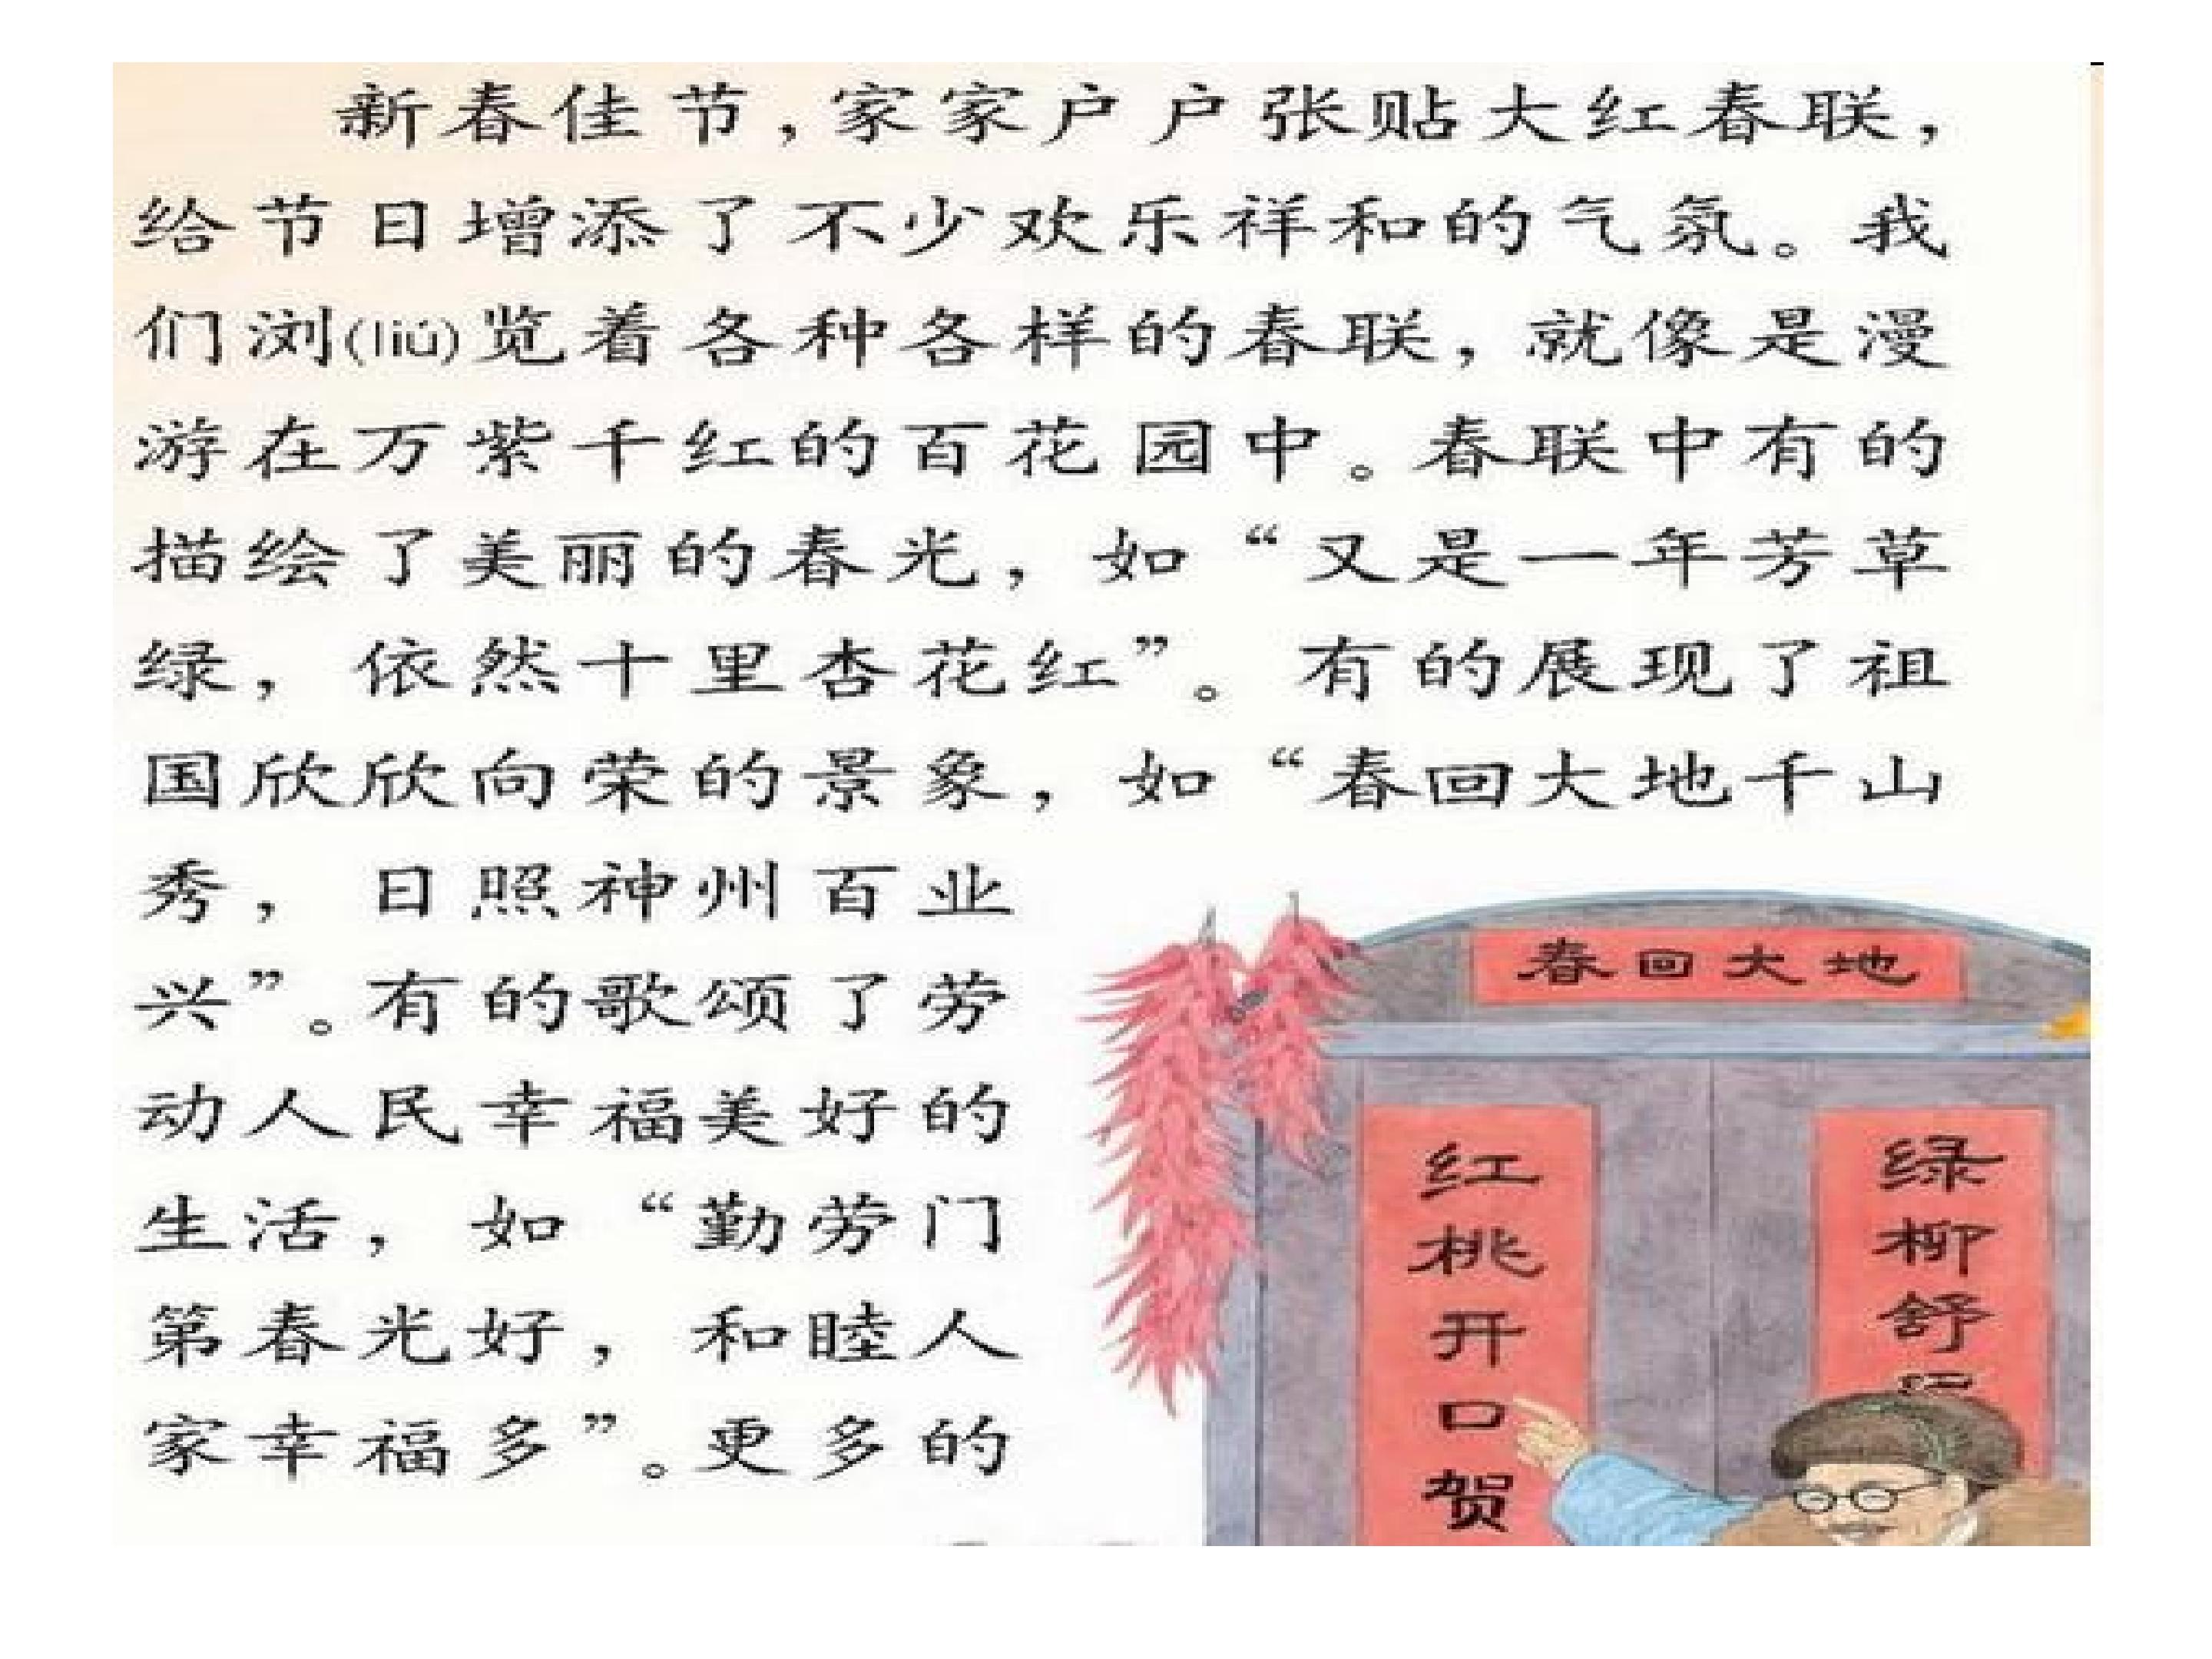 新春佳节,家家户户张贴大红春联,
给节日增添了不少欢乐祥和的气氛。我
们浏(liú)览着各种各样的春联,就像是漫
游在万紫千红的百花园中。春联中有的
描绘了美丽的春光,如“又是一年芳草
绿,依然十里杏花红”。有的展现了祖
国欣欣向荣的景象,如“春回大地千山
秀,日照神州百业
兴”。有的歌颂了劳
动人民幸福美好的
生活,如“勤劳门
第春光好,和睦人
家幸福多”。更多的
春回大地
红桃开口贺
绿柳舒